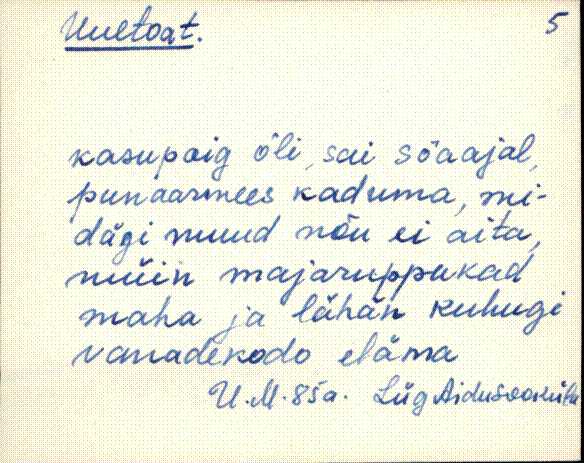 Uuetoat. 5
kasupoig õli, sai sõaajal,
punaarmees kaduma, mi-
dägi muud nõu ei aita,
müin majaruppukad
maha ja lähän kuhugi
vanadekodo eläma
U.M. 85a. Lüg Aidusooküla